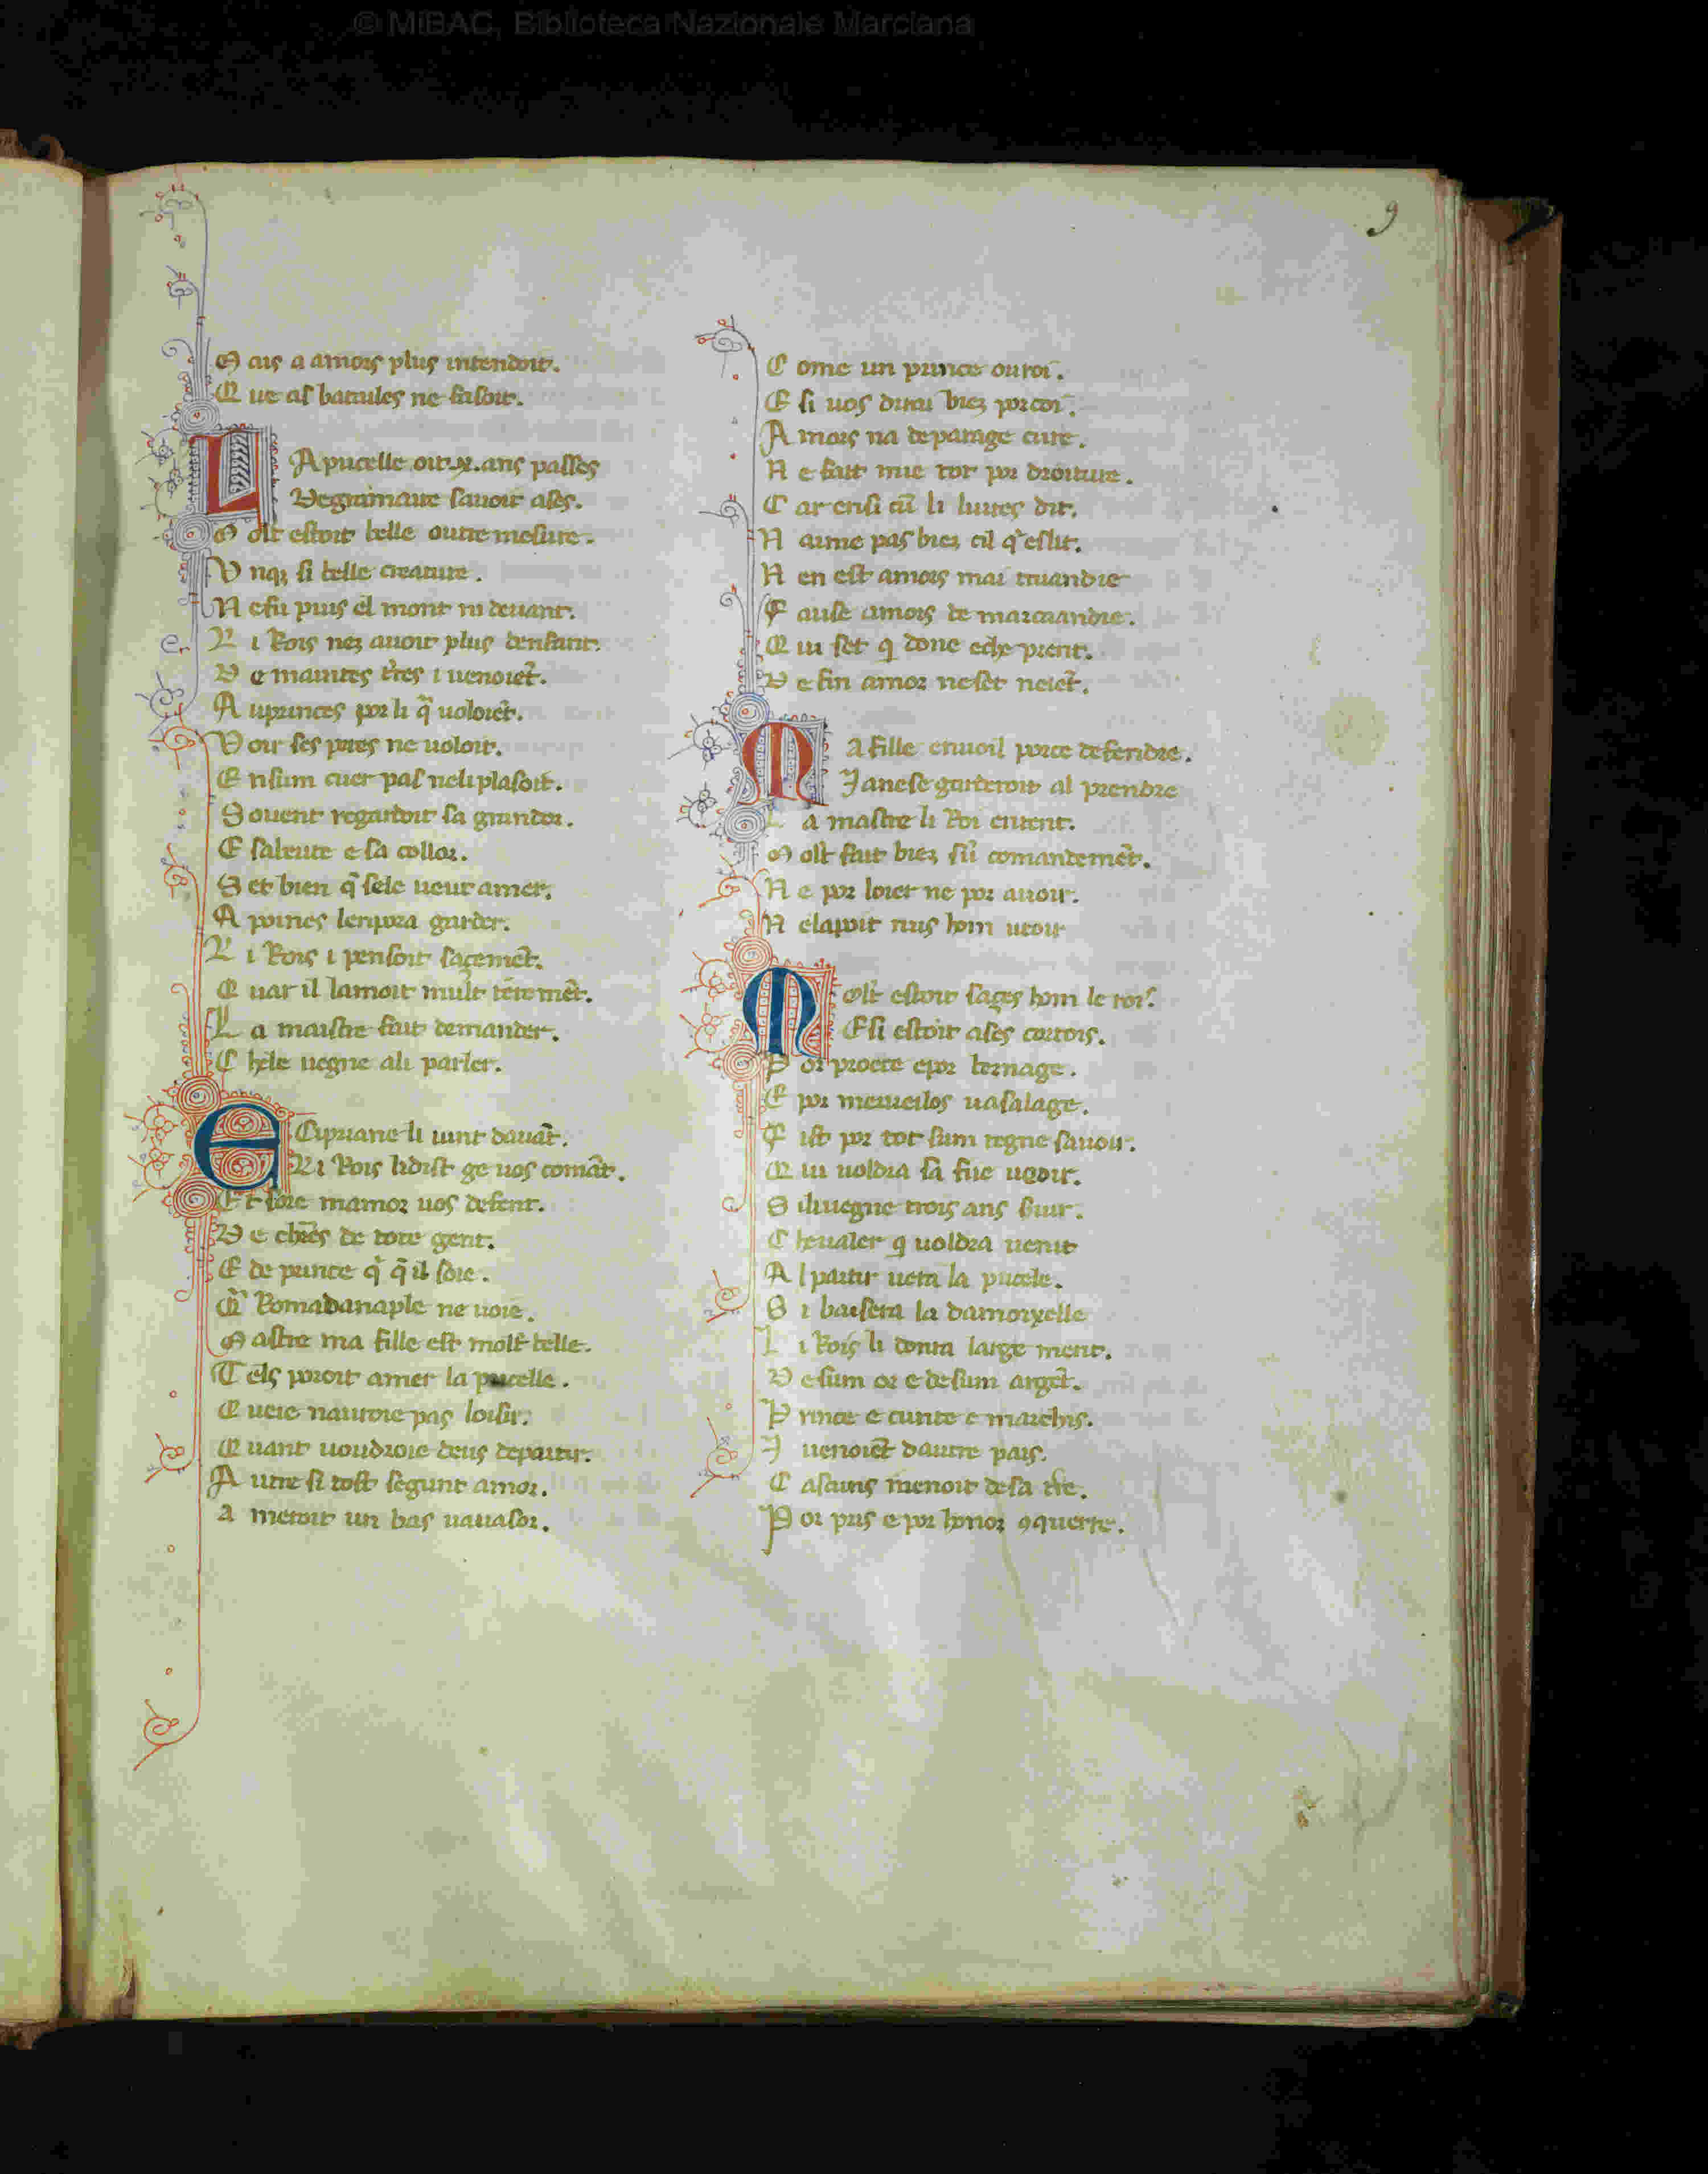 © MiBAC, Biblioteca Nazionale Marciana
9
M ais a amors plus intendoit.
Q ue as batailes ne fasoit.
L A pucelle oit .x. ans passes
De gramaire savoit ases.
M olt estoit belle outre mesure.
V nqȝ si belle creature.
N e fu puis el mont ni devant.
L i Rois neȝ avoit plus denfant.
D e maintes t̃res i venoiẽt.
A uprinces por li q̃ voloiẽt.
V oir ses pares ne voloit.
E n sum cuer pas neli plasoit.
S ovent regardoit sa grandor.
E sa beute e sa collor.
S et bien q̃ sele veut amer.
A poines lenpora garder.
L i Rois i pensoit sagemẽt.
Q uar il lamoit mult tẽremẽt.
L a maistre fait demander.
C hele vegne ali parler.
E Cipriane li vint davãt.
Li Rois lidist ge vos comãt.
E t sore mamor vos defent.
D e chẽs de tote gent.
E de prince q̃ q̃ il soie.
Q̃ Romadanaple ne voie.
M astre ma fille est molt belle.
T els poroit amer la pucelle.
Q ueie navroie pas loisir.
Q uant voudroie deus departir.
A utre si tost segunt amor.
a meroit un bas vavasor.
C ome un prince ou roi.
E si vos dirai bieȝ por coi.
A mors na de parage cure.
N e fait mie tot por droiture.
C ar ensi cũ li livres dit.
N aime pas bieȝ cil q̃ eslit.
N en est amors mai truandie
F ause amors de marcaandie.
Q ui set q done eche prent.
D e fin amor ne set neiẽt.
M a fille envoil porce defendre.
Ja nese garderoit al prendre
L a mastre li Roi entent.
M olt fait bieȝ sũ comandemẽt.
N e por loier ne por avoir.
N ela poit nus hom veoir
M olt estoit sages hom le rois.
E si estoit ases cortois.
P or proece epor bernage.
E por merveilos vasalage.
F ist por tot sum regne savoir.
Q ui voldra sa fiie veoir.
S il iuegne trois ans servir.
C hevaler q voldra venir
A l partir vera la pucele.
S i baisera la damoixelle
L i Rois li donra large ment.
D e sum or e de sum argẽt.
P rince e cunte e marchis.
I venoiẽt dautre pais.
C ascuns menoit desa t̃re.
P or pris e por honor ꝯquerre.